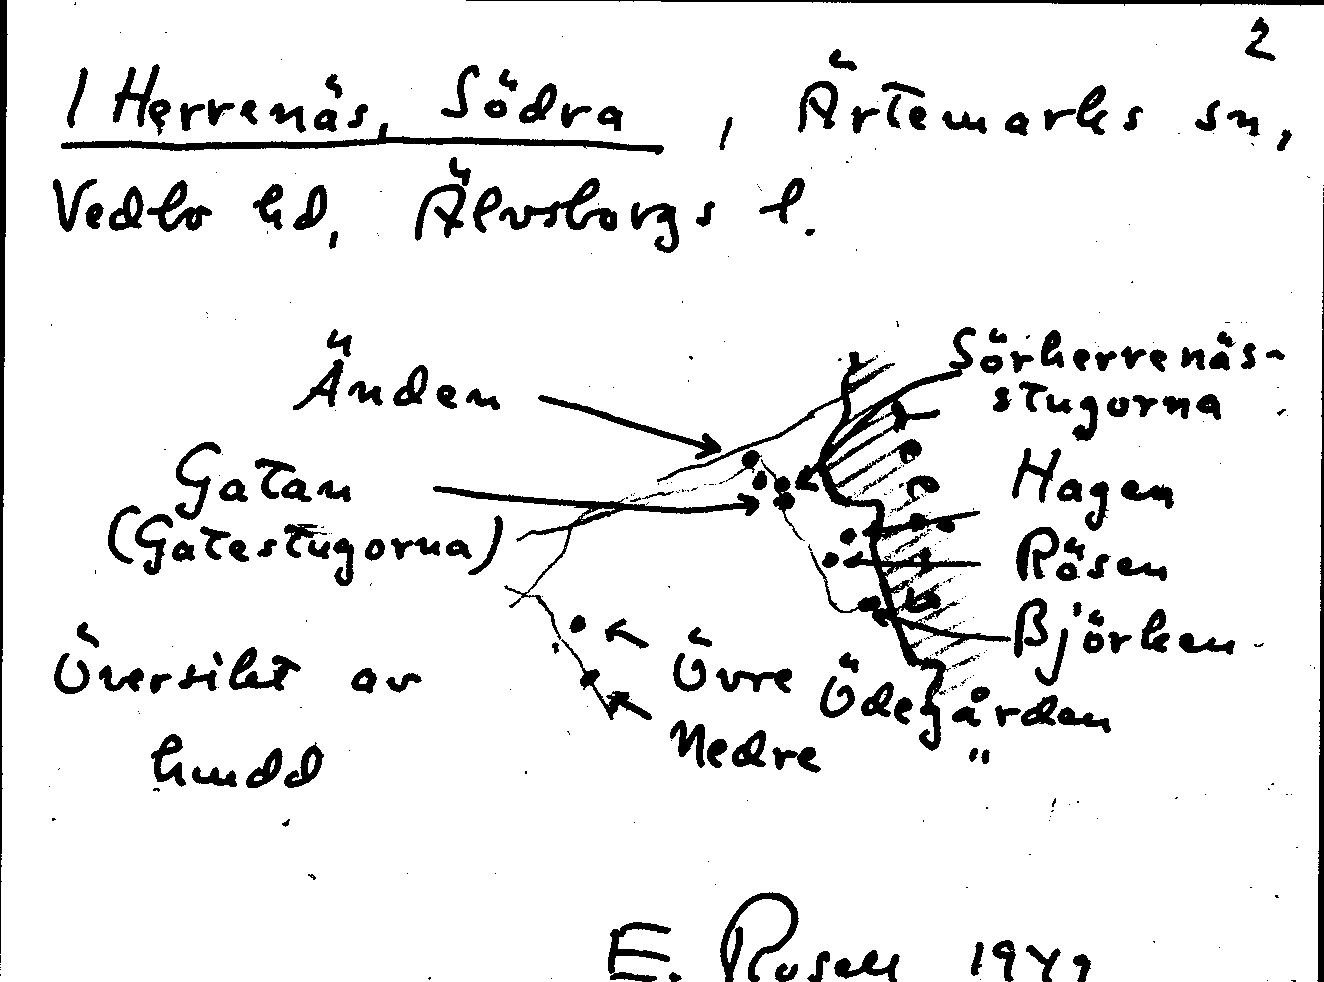 2
1 Herrenäs, Södra, Ärtemarks sn,
Vedbo hd, Älvsborgs l.
Änden
Sörherrenäs-
stugorna
Gatan
(Gatestugorna)
Hagen
Rösen
Björken
Översikt av
Övre Ödegården
Nedre "
E. Rosell 1949